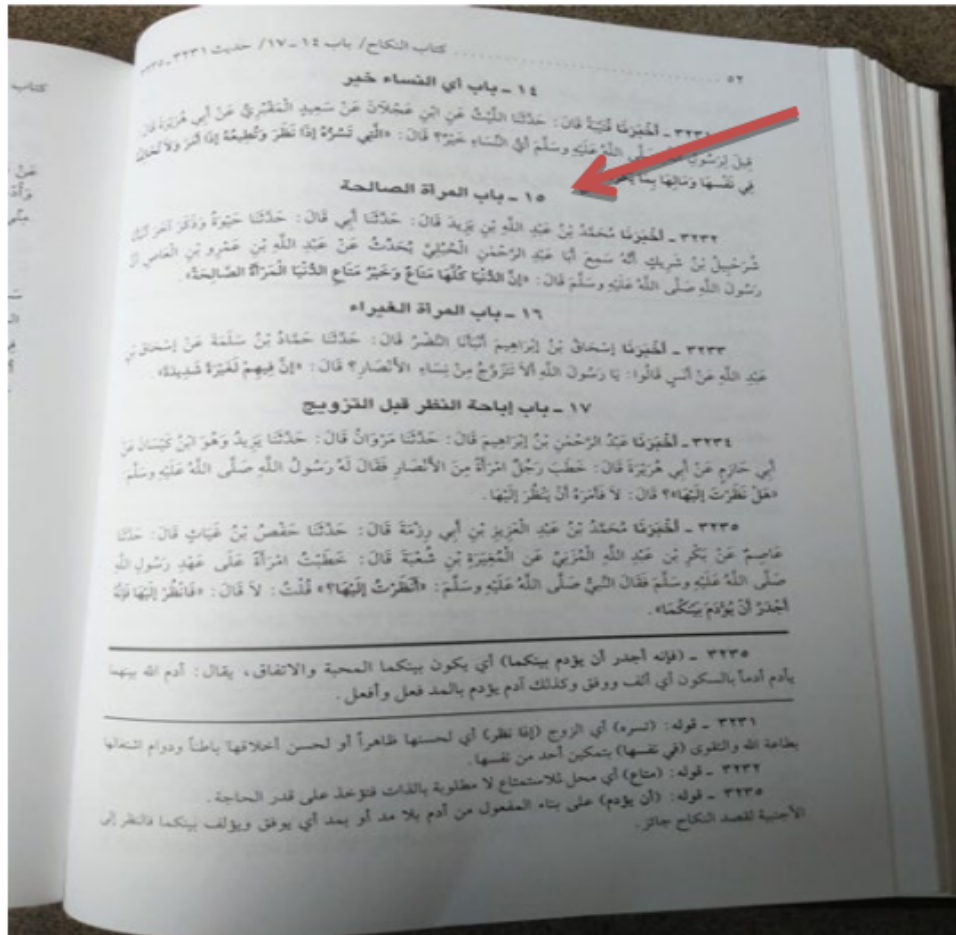 ٥٢ كتاب النكاح/ باب ١٤ ـ ١٧/ حديث ٣٢٣١ ـ ٣٢٣٥
١٤ ـ باب أي النساء خير
٣٢٣١ ـ أَخْبَرَنَا قُتَيْبَةُ قَالَ: حَدَّثَنَا اللَّيْثُ عَنِ ابْنِ عَجْلَانَ عَنْ سَعِيدٍ الْمَقْبُرِيِّ عَنْ أَبِي هُرَيْرَةَ قَالَ
قِيلَ لِرَسُولِ اللَّهِ صَلَّى اللَّهُ عَلَيْهِ وَسَلَّمَ أَيُّ النِّسَاءِ خَيْرٌ؟ قَالَ: «الَّتِي تَسُرُّهُ إِذَا نَظَرَ وَتُطِيعُهُ إِذَا أَمَرَ وَلَا تُخَالِفُهُ
فِي نَفْسِهَا وَمَالِهَا بِمَا يَكْرَهُ
١٥ ـ باب المرأة الصالحة
٣٢٣٢ ـ أَخْبَرَنَا مُحَمَّدُ بْنُ عَبْدِ اللَّهِ بْنِ يَزِيدَ قَالَ: حَدَّثَنَا أَبِي قَالَ: حَدَّثَنَا حَيْوَةُ وَذَكَرَ آخَرَ أَنْبَأَنَا
شُرَحْبِيلُ بْنُ شَرِيكٍ أَنَّهُ سَمِعَ أَبَا عَبْدِ الرَّحْمَنِ الْحُبُلِيَّ يُحَدِّثُ عَنْ عَبْدِ اللَّهِ بْنِ عَمْرِو بْنِ الْعَاصِ أَنَّ
رَسُولَ اللَّهِ صَلَّى اللَّهُ عَلَيْهِ وَسَلَّمَ قَالَ: «إِنَّ الدُّنْيَا كُلَّهَا مَتَاعٌ وَخَيْرُ مَتَاعِ الدُّنْيَا الْمَرْأَةُ الصَّالِحَةُ».
١٦ ـ باب المرأة الغيراء
٣٢٣٣ ـ أَخْبَرَنَا إِسْحَاقُ بْنُ إِبْرَاهِيمَ أَنْبَأَنَا النَّضْرُ قَالَ: حَدَّثَنَا حَمَّادُ بْنُ سَلَمَةَ عَنْ إِسْحَاقَ بْنِ
عَبْدِ اللَّهِ عَنْ أَنَسٍ قَالُوا: يَا رَسُولَ اللَّهِ أَلَا تَتَزَوَّجُ مِنْ نِسَاءِ الْأَنْصَارِ؟ قَالَ: «إِنَّ فِيهِمْ لَغَيْرَةً شَدِيدَةً».
١٧ ـ باب إباحة النظر قبل التزويج
٣٢٣٤ ـ أَخْبَرَنَا عَبْدُ الرَّحْمَنِ بْنُ إِبْرَاهِيمَ قَالَ: حَدَّثَنَا مَرْوَانُ قَالَ: حَدَّثَنَا يَزِيدُ وَهُوَ ابْنُ كَيْسَانَ عَنْ
أَبِي حَازِمٍ عَنْ أَبِي هُرَيْرَةَ قَالَ: خَطَبَ رَجُلٌ امْرَأَةً مِنَ الْأَنْصَارِ فَقَالَ لَهُ رَسُولُ اللَّهِ صَلَّى اللَّهُ عَلَيْهِ وَسَلَّمَ:
«هَلْ نَظَرْتَ إِلَيْهَا»؟ قَالَ: لَا فَأَمَرَهُ أَنْ يَنْظُرَ إِلَيْهَا.
٣٢٣٥ ـ أَخْبَرَنَا مُحَمَّدُ بْنُ عَبْدِ الْعَزِيزِ بْنِ أَبِي رِزْمَةَ قَالَ: حَدَّثَنَا حَفْصُ بْنُ غِيَاثٍ قَالَ: حَدَّثَنَا
عَاصِمٌ عَنْ بَكْرِ بْنِ عَبْدِ اللَّهِ الْمُزَنِيِّ عَنِ الْمُغِيرَةِ بْنِ شُعْبَةَ قَالَ: خَطَبْتُ امْرَأَةً عَلَى عَهْدِ رَسُولِ اللَّهِ
صَلَّى اللَّهُ عَلَيْهِ وَسَلَّمَ فَقَالَ النَّبِيُّ صَلَّى اللَّهُ عَلَيْهِ وَسَلَّمَ: «أَنَظَرْتَ إِلَيْهَا؟» قُلْتُ: لَا قَالَ: «فَانْظُرْ إِلَيْهَا فَإِنَّهُ
أَجْدَرُ أَنْ يُؤْدَمَ بَيْنَكُمَا».
٣٢٣٥ ـ (فإنه أجدر أن يؤدم بينكما) أي يكون بينكما المحبة والاتفاق، يقال: أدم الله بينهما
يأدم أدماً بالسكون أي ألف ووفق وكذلك آدم يؤدم بالمد فعل وأفعل.
٣٢٣١ ـ قوله: (تسره) أي الزوج (إذا نظر) أي لحسنها ظاهراً أو لحسن أخلاقها باطناً ودوام اشتغالها
بطاعة الله والتقوى (في نفسها) بتمكين أحد من نفسها.
٣٢٣٢ ـ قوله: (متاع) أي محل للاستمتاع لا مطلوبة بالذات فتؤخذ على قدر الحاجة.
٣٢٣٥ ـ قوله: (أن يؤدم) على بناء المفعول من أدم بلا مد أو بمد أي يوفق ويؤلف بينكما فالنظر إلى
الأجنبية لقصد النكاح جائز.